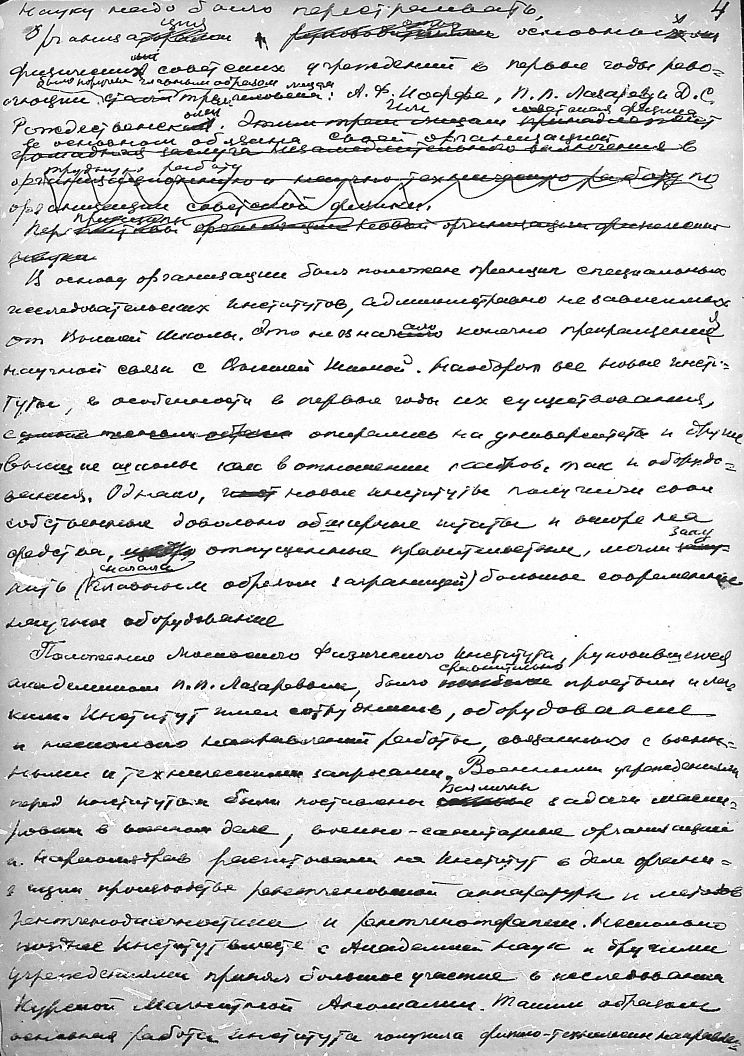 науку надо было перестраивать.
4
Организация основных
физических советских учреждений в первые годы рево-
было поручена главным образом людям
люции трем : А.Ф. Иоффе, П.П. Лазареву и Д.С.
Рождественскому. Им советская физика
в основном обязана своей организацией
трудную работу
организационную и научно-техническую работу по
организации советской физики.
организации новой организации физической
науки
В основу организации был положен принцип специальных
исследовательских институтов, административно независимых
от Высшей Школы. Это не означало конечно прекращения
научной связи с Высшей Школой. Наоборот все новые инсти-
туты, в особенности в первые годы их существования,
опирались на университеты и другие
высшие школы как в отношении кадров, так и оборудо-
вания. Однако, новые институты получили свои
собственные довольно обширные штаты и вскоре на
средства, отпущенные правительством, могли заку
пить (сначала главным образом заграницей) большое современное
научное оборудование
Положение Московского Физического Института, руководившегося
академиком П.П. Лазаревым, было сравнительно простым и лег-
ким. Институт имел сотрудников, оборудование
и несколько направлений работы, связанных с воен-
ными и техническими запросами. Военными учреждениями
перед институтом были поставлены различны задачи маски-
ровки в военном деле, военно-санитарные организации
и Наркомздрав рассчитывали на Институт в деле органи-
зации производства рентгеновской аппаратуры и методов
рентгенодиагностики и рентгенотерапии. Несколько
позднее Институт вместе с Академией Наук и другими
учреждениями принял большое участие в исследовании
Курской Магнитной Аномалии. Таким образом
основная работа института получила физико-техническое направле-